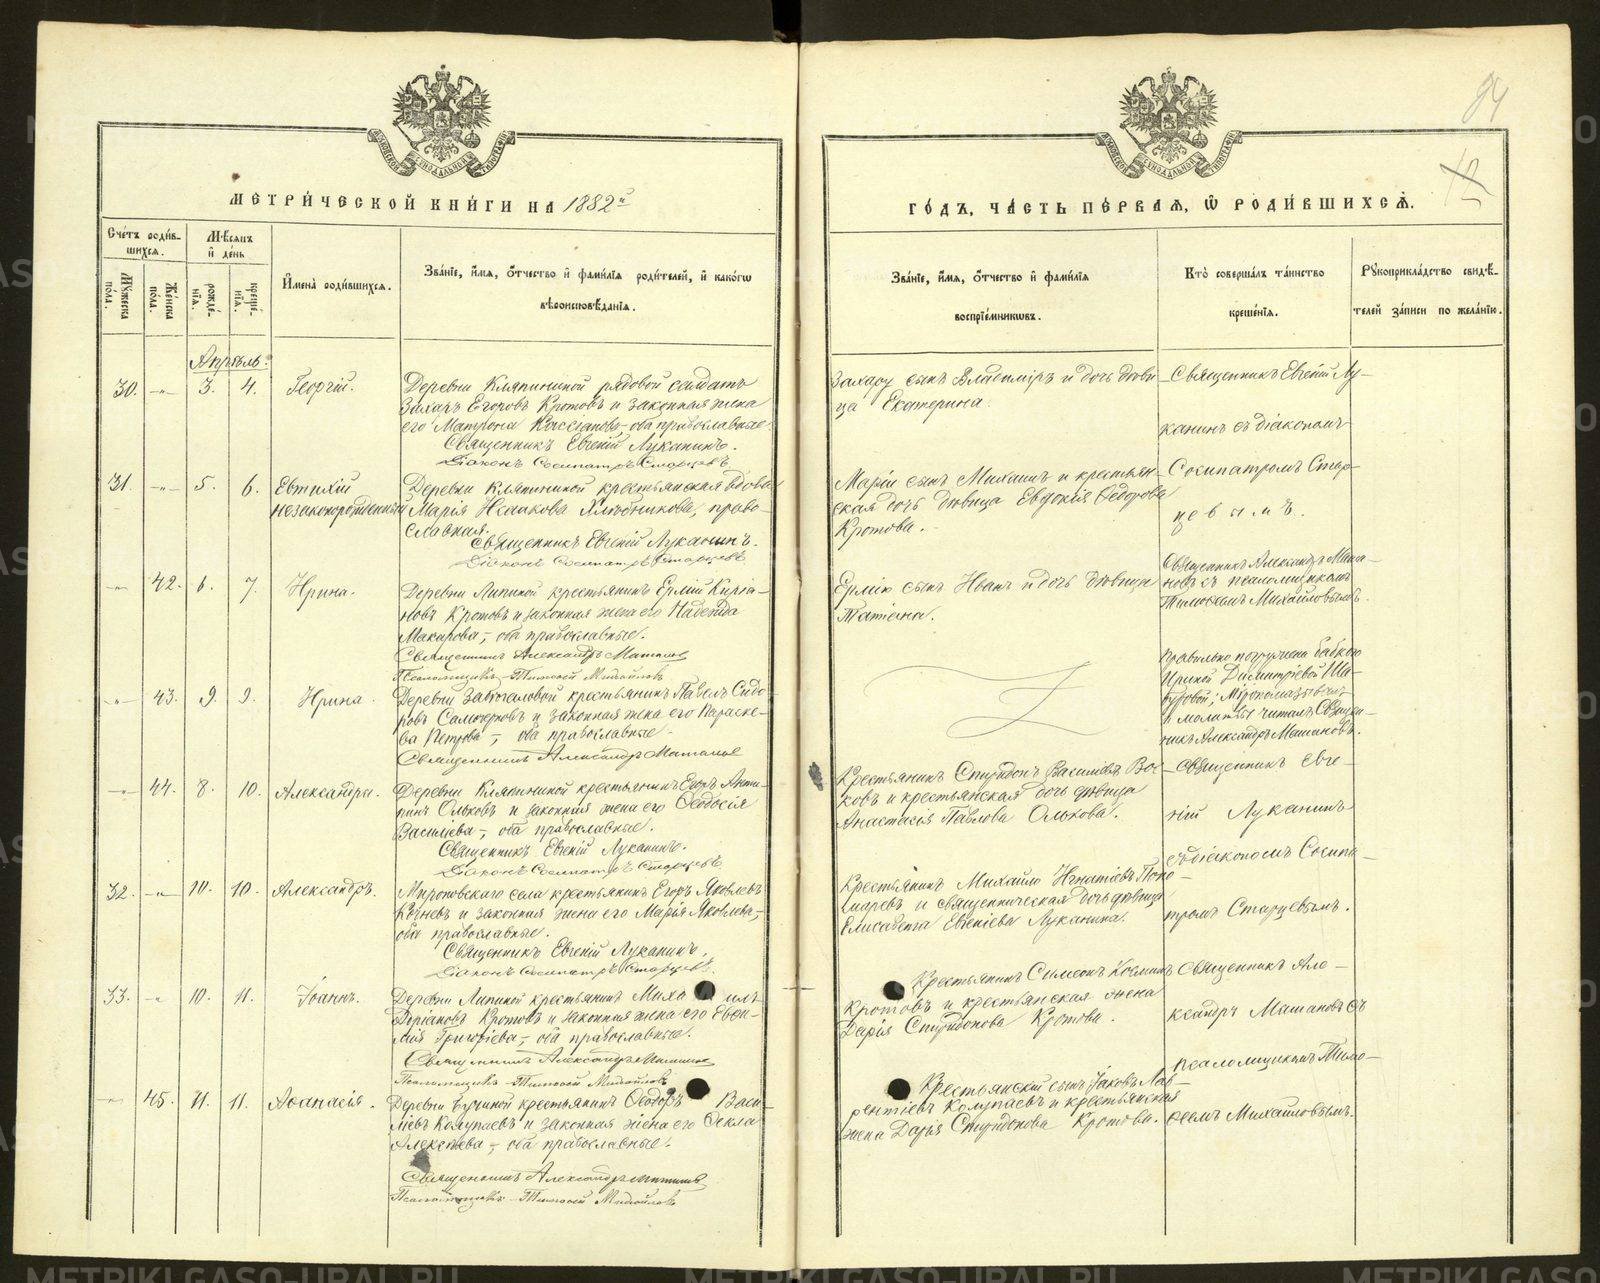 94
12
МОСКОВСКОЙ СѴНОДАЛЬНОЙ ТИПОГРАФІИ
МОСКОВСКОЙ СѴНОДАЛЬНОЙ ТИПОГРАФІИ
МЕТРИ́ЧЕСКОЙ КНИ́ГИ НА 1882й
ГО́ДЪ, ЧА́СТЬ ПЕ́РВАЯ, Ѡ РОДИ́ВШИХСѦ.
Сче́тъ роди́в-
шихсѧ.
Мꙋжеска по́ла.
Же́нска по́ла.
Мѣ́сѧцъ
и҆ де́нь
рожде́-
нїѧ.
креще́-
нїѧ.
И҆мена̀ роди́вшихсѧ.
Зва́нїе, и҆́мѧ, о҆́тчество и҆ фами́лїѧ роди́телей, и҆ како́гѡ
вѣроисповѣ́данїѧ.
Зва́нїе, и҆́мѧ, о҆́тчество и҆ фами́лїѧ
воспрїе́мникѡвъ.
Кто̀ соверша́лъ та́инство
креще́нїѧ.
Рꙋкоприкла́дство свидѣ́-
телей за́писи по жела́нїю.
Апрѣль.
30. -"- 3. 4. Георгій.
Деревни Кляпининой рядовой солдатъ
Захаръ Егоровъ Кротовъ и законная жена
его Матрона Кассіанова - оба православные.
Священникъ Евгеній Луканинъ.
Діаконъ Сосипатръ Старцевъ
Захару сынъ Владиміръ и дочь дѣви-
ца Екатерина.
Священникъ Евгеній Лу-
канинъ съ діакономъ
31. -"- 5. 6. Евтихій
незаконорожденный
Деревни Кляпининой крестьянская вдова
Марія Исаакова православная.
Священникъ Евгеній Луканинъ.
Діаконъ Сосипатръ Старцевъ
Маріи сынъ Михаилъ и крестьян-
ская дочь дѣвица Евдокія Ѳедорова
Кротова.
Сосипатромъ Стар-
цевымъ.
-"- 42. 6. 7. Ирина.
Деревни Липиной крестьянинъ Ермій Киріа-
новъ Кротовъ и законная жена его Надежда
Макарова, - оба православные.
Священникъ Александръ Машановъ
Псаломщикъ - Тимоѳей Михайловъ
Ермію сынъ Иванъ и дочь дѣвица
Татіана.
Священникъ Александръ Маша-
новъ съ псаломщикомъ
Тимоѳеемъ Михайловымъ.
-"- 43. 9. 9. Ирина.
крестьянинъ Павелъ Сидо-
ровъ и законная жена его Параске-
ва Петрова -, оба православные.
Священникъ Александръ Машановъ
Правильно погружена бабкою
Ириной Димитріевой Ша-
буровой; Мѵропомазывалъ
и молитвы читалъ Священ-
никъ Александръ Машановъ.
-"- 44. 8. 10. Александра.
Деревни Кляпининой крестьянинъ Егоръ Анти-
пинъ Ольковъ и законная жена его Ѳеодосія
Василіева -, оба православные.
Священникъ Евгеній Луканинъ.
Діаконъ Сосипатръ Старцевъ
Крестьянинъ Спиридонъ Василіевъ
и крестьянская дочь дѣвица
Анастасія Павлова Олькова.
Священникъ Евге-
ній Луканинъ
32. -"- 10. 10. Александръ.
Мироновскаго села крестьянинъ Егоръ Яковлевъ
и законная жена его Марія Яковлева,-
оба православные.
Священникъ Евгеній Луканинъ.
Діаконъ Сосипатръ Старцевъ.
Крестьянинъ Михайло Игнатіевъ Поно-
маревъ и священническая дочь дѣвица
Елисавета Евгеніева Луканина.
съ діакономъ Сосипа-
тромъ Старцевымъ.
33. -"- 10. 11. Іоаннъ.
Деревни Липиной крестьянинъ Миха илъ
Киріановъ Кротовъ и законная жена его Евѳи-
мія Григоріева -, оба православные.
Священникъ Александръ Машановъ
Псаломщикъ - Тимоѳей Михайловъ
Крестьянинъ Симеонъ Косминъ
Кротовъ и крестьянская жена
Дарія Спиридонова Кротова.
Священникъ Але-
ксандръ Машановъ съ
-"- 45. 11. 11. Аѳанасія.
крестьянинъ Ѳеодоръ Васи-
лiевъ Колупаевъ и законная жена его Ѳекла
Алексѣева -, оба православные.
Священникъ Александръ Машановъ
Псаломщикъ - Тимоѳей Михайловъ
Крестьянскій сынъ Іаковъ Лав-
рентіевъ Колупаевъ и крестьянская
жена Дарія Спиридонова Кротова.
псаломщикомъ Тимо-
ѳеемъ Михайловымъ.
METRIKI.GASO-URAL.RU